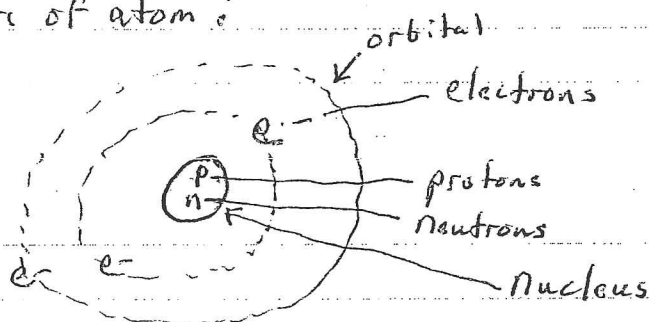 of atom:
orbital
electrons
e-
p
protons
n
neutrons
e-
e-
nucleus